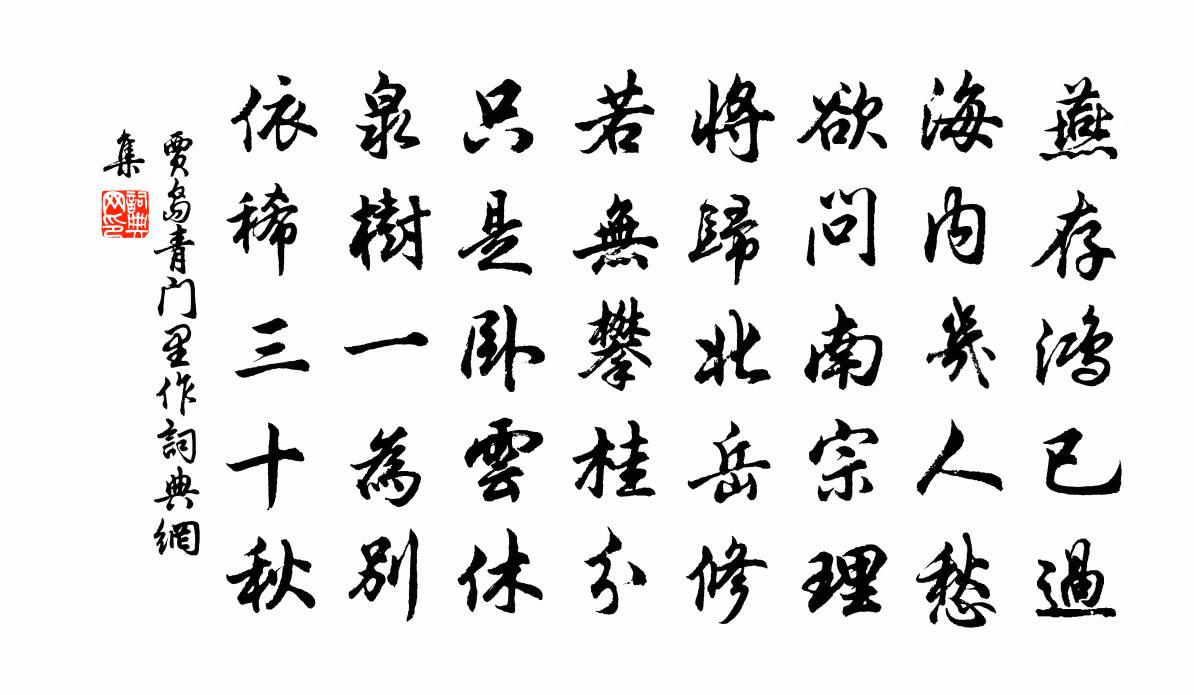 燕存鴻已過
海内幾人愁
欲問南宗理
將歸北岳修
若無攀桂分
只是卧雲休
泉樹一為别
依稀三十秋
賈島青门里作詞典網
集
詞典
网印